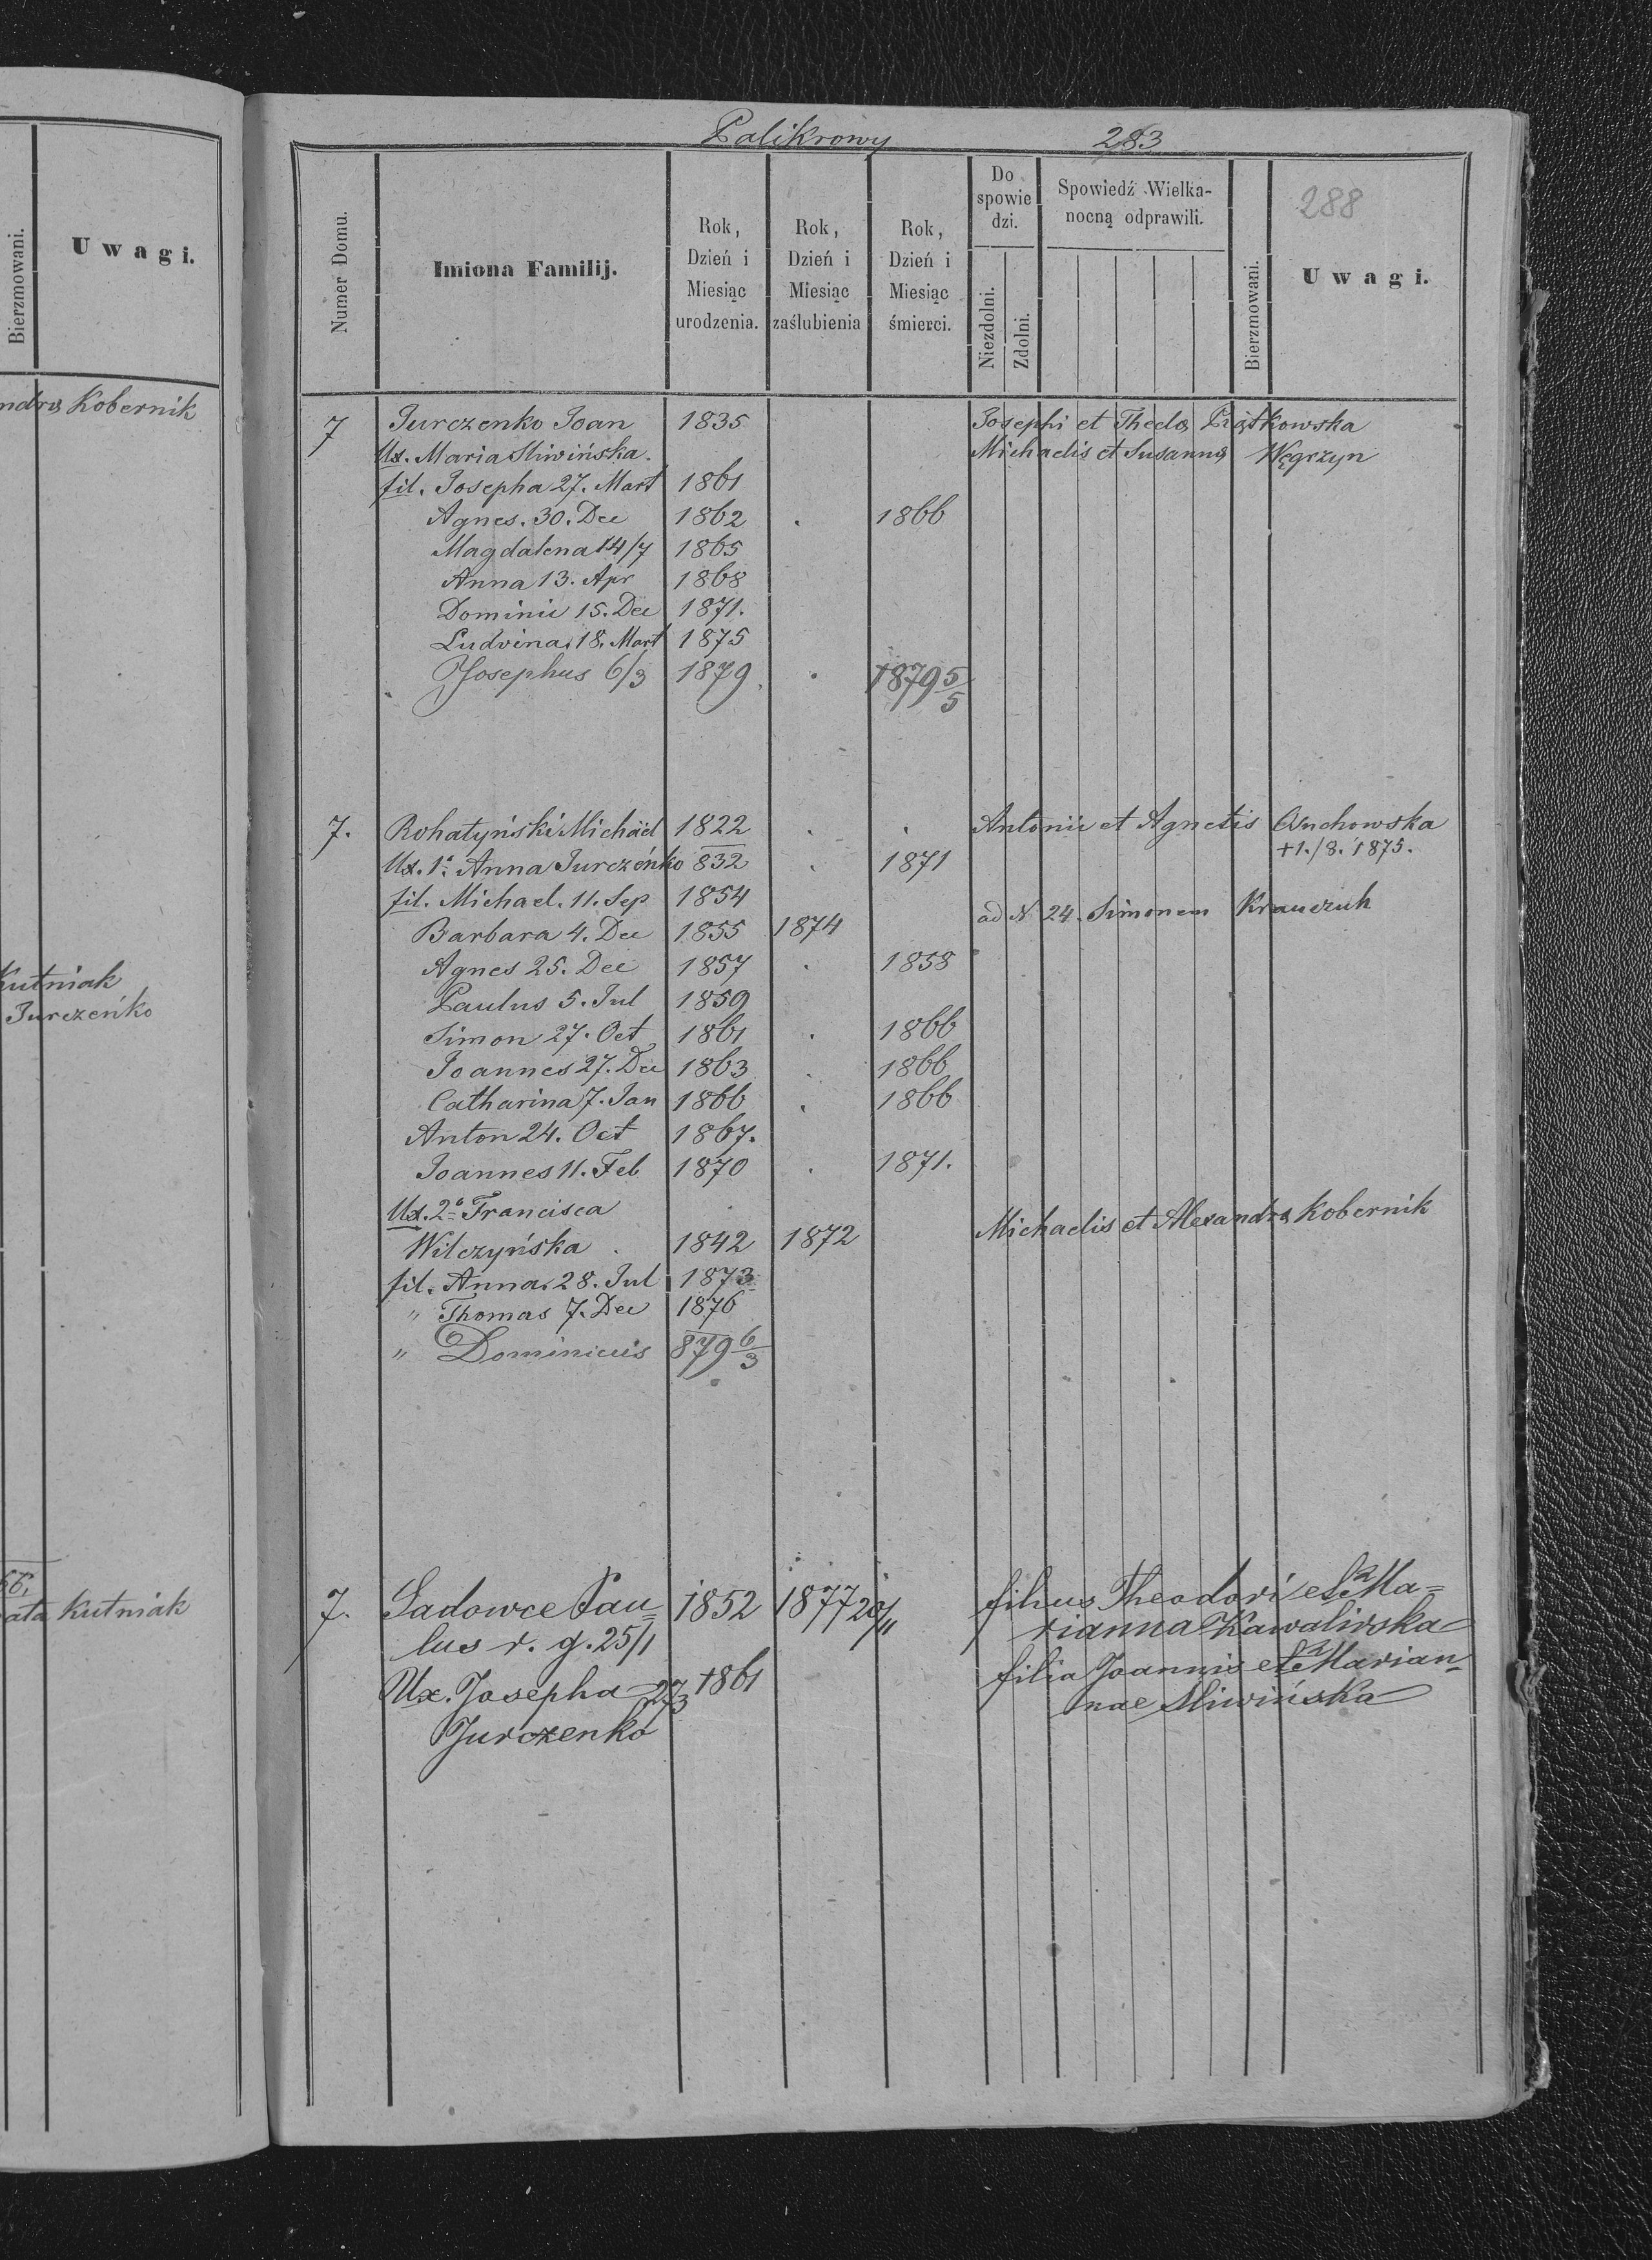 Bierzmowani.
U w a g i.
Kobernik
Kutniak
Jurczeńko
Kutniak
Palikrowy 283
288
Numer Domu.
Imiona Familij.
Rok,
Dzień i
Miesiąc
urodzenia.
Rok,
Dzień i
Miesiąc
zaślubienia
Rok,
Dzień i
Miesiąc
śmierci.
Do
spowie
dzi.
Niezdolni.
Zdolni.
Spowiedź Wielka-
nocną odprawili.
Bierzmowani.
U w a g i.
7 Jurczenko Joan 1835 Josephi et Thecla Piątkowska
Ux. Maria Sliwińska. Michaelis et Susanna Węgrzyn
fil. Josepha 27. Mart 1861
Agnes. 30. Dec 1862 . 1866
Magdalena 14/7 1865
Anna 13. Apr 1868
Dominic 15. Dec 1871.
Ludvina. 18. Mart 1875
Josephus 6/3 1879 . †879 5/5
7. Rohatyński Michäel 1822 . . Antonii et Agnetis
Ux. 1º Anna Jurczeńko 832 . 1871 +1./8. 1875.
fil. Michael. 11. Sep 1854
Barbara 4. Dec 1855 1874 ad N 24. Simonem Krawczuk
Agnes 25. Dec 1857 . 1858
Paulus 5. Jul 1859
Simon 27. Oct 1861 . 1866
Joannes 27. Dec 1863 . 1866
Catharina 7. Jan 1866 . 1866
Anton 24. Oct 1867.
Joannes 11. Feb 1870 . 1871.
Ux. 2º Francisca
Wilczyńska . 1842 1872 Michaelis et Alexandra Kobernik
fil. Anna. 28. Jul 1873
" Thomas 7. Dec 1876
" Dominicus 879 6/3
7. Sadowce Pau= 1852 1877 20/11 filius Theodori et Ma=
lus r. g. 25/1 rianna Kawaliwska
Ux. Josepha 27/3 1861 filia Joannis et Marian=
Jurczenko nae Sliwińska